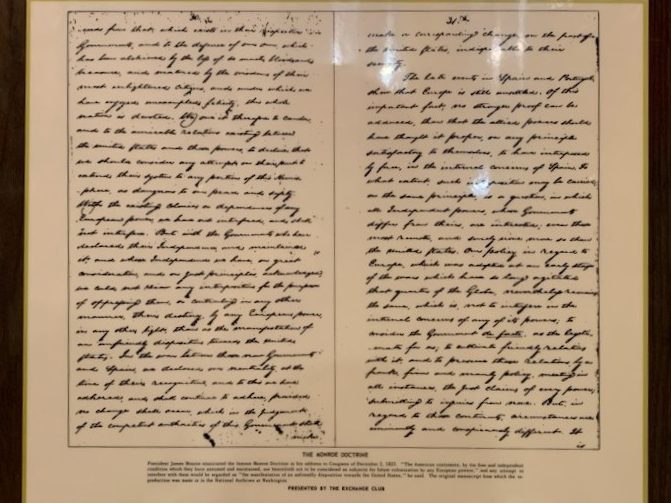 30.
ence from that, which exists in their respective
Governments, and to the defence of our own, which
has been atchieved by the loss of so much blood and
treasure, and matured by the wisdom of their
most enlightened citizens, and under which we
have enjoyed unexampled felicity, this whole
nation is devoted. We owe it therefore to candor,
and to the amicable relations existing between
the United States and those powers to declare that
we should consider any attempt on their part to
extend their system to any portion of this Hemis-
phere, as dangerous to our peace and safety.
With the existing Colonies or dependencies of any
European power, we have not interfered, and shall
not interfere. But with the Governments who have
declared their Independence, and maintained
it, and whose Independence we have, on great
consideration, and on just principles, acknowledged,
we could not view any interposition for the purpose
of oppressing them, or controuling in any other
manner, their destiny, by any European power,
in any other light, than as the manifestation of
an unfriendly disposition towards the United
States. In the war between those new Governments
and Spain, we declared our neutrality at the
time of their recognition, and to this we have
adhered, and shall continue to adhere, provided
no change shall occur, which in the judgment
of the competent authorities of this Government shall
make
31st
make a corresponding change on the part of
the United States, indispensable to their
security.
The late events in Spain and Portugal,
shew that Europe is still unsettled. Of this
important fact, no stronger proof can be
adduced, than that the allied powers should
have thought it proper, on any principle
satisfactory to themselves, to have interposed
by force, in the internal concerns of Spain. To
what extent, such interposition may be carried,
on the same principle, is a question, in which
all Independent powers, whose Governments
differ from theirs, are interested, even those
most remote, and surely none more so than
the United States. Our policy in regard to
Europe, which was adopted at an early stage
of the wars which have so long agitated
that quarter of the Globe, nevertheless remains
the same, which is, not to interfere in the
internal concerns of any of its powers, to
consider the Government de facto, as the legiti-
mate for us; to cultivate friendly relations
with it, and to preserve those relations by a
frank, firm and manly policy, meeting in
all instances, the just claims of every power,
submitting to injuries from none. But, in
regard to these continents, circumstances are
eminently and conspicuously different. It
is
THE MONROE DOCTRINE
President James Monroe enunciated the famous Monroe Doctrine in his address to Congress of December 2, 1823. "The American continents, by the free and independent
condition which they have assumed and maintained, are henceforth not to be considered as subjects for future colonization by any European powers," and any attempt to
interfere with them would be regarded as "the manifestation of an unfriendly disposition towards the United States," he said. The original manuscript from which the re-
production was made is in the National Archives at Washington.
PRESENTED BY THE EXCHANGE CLUB